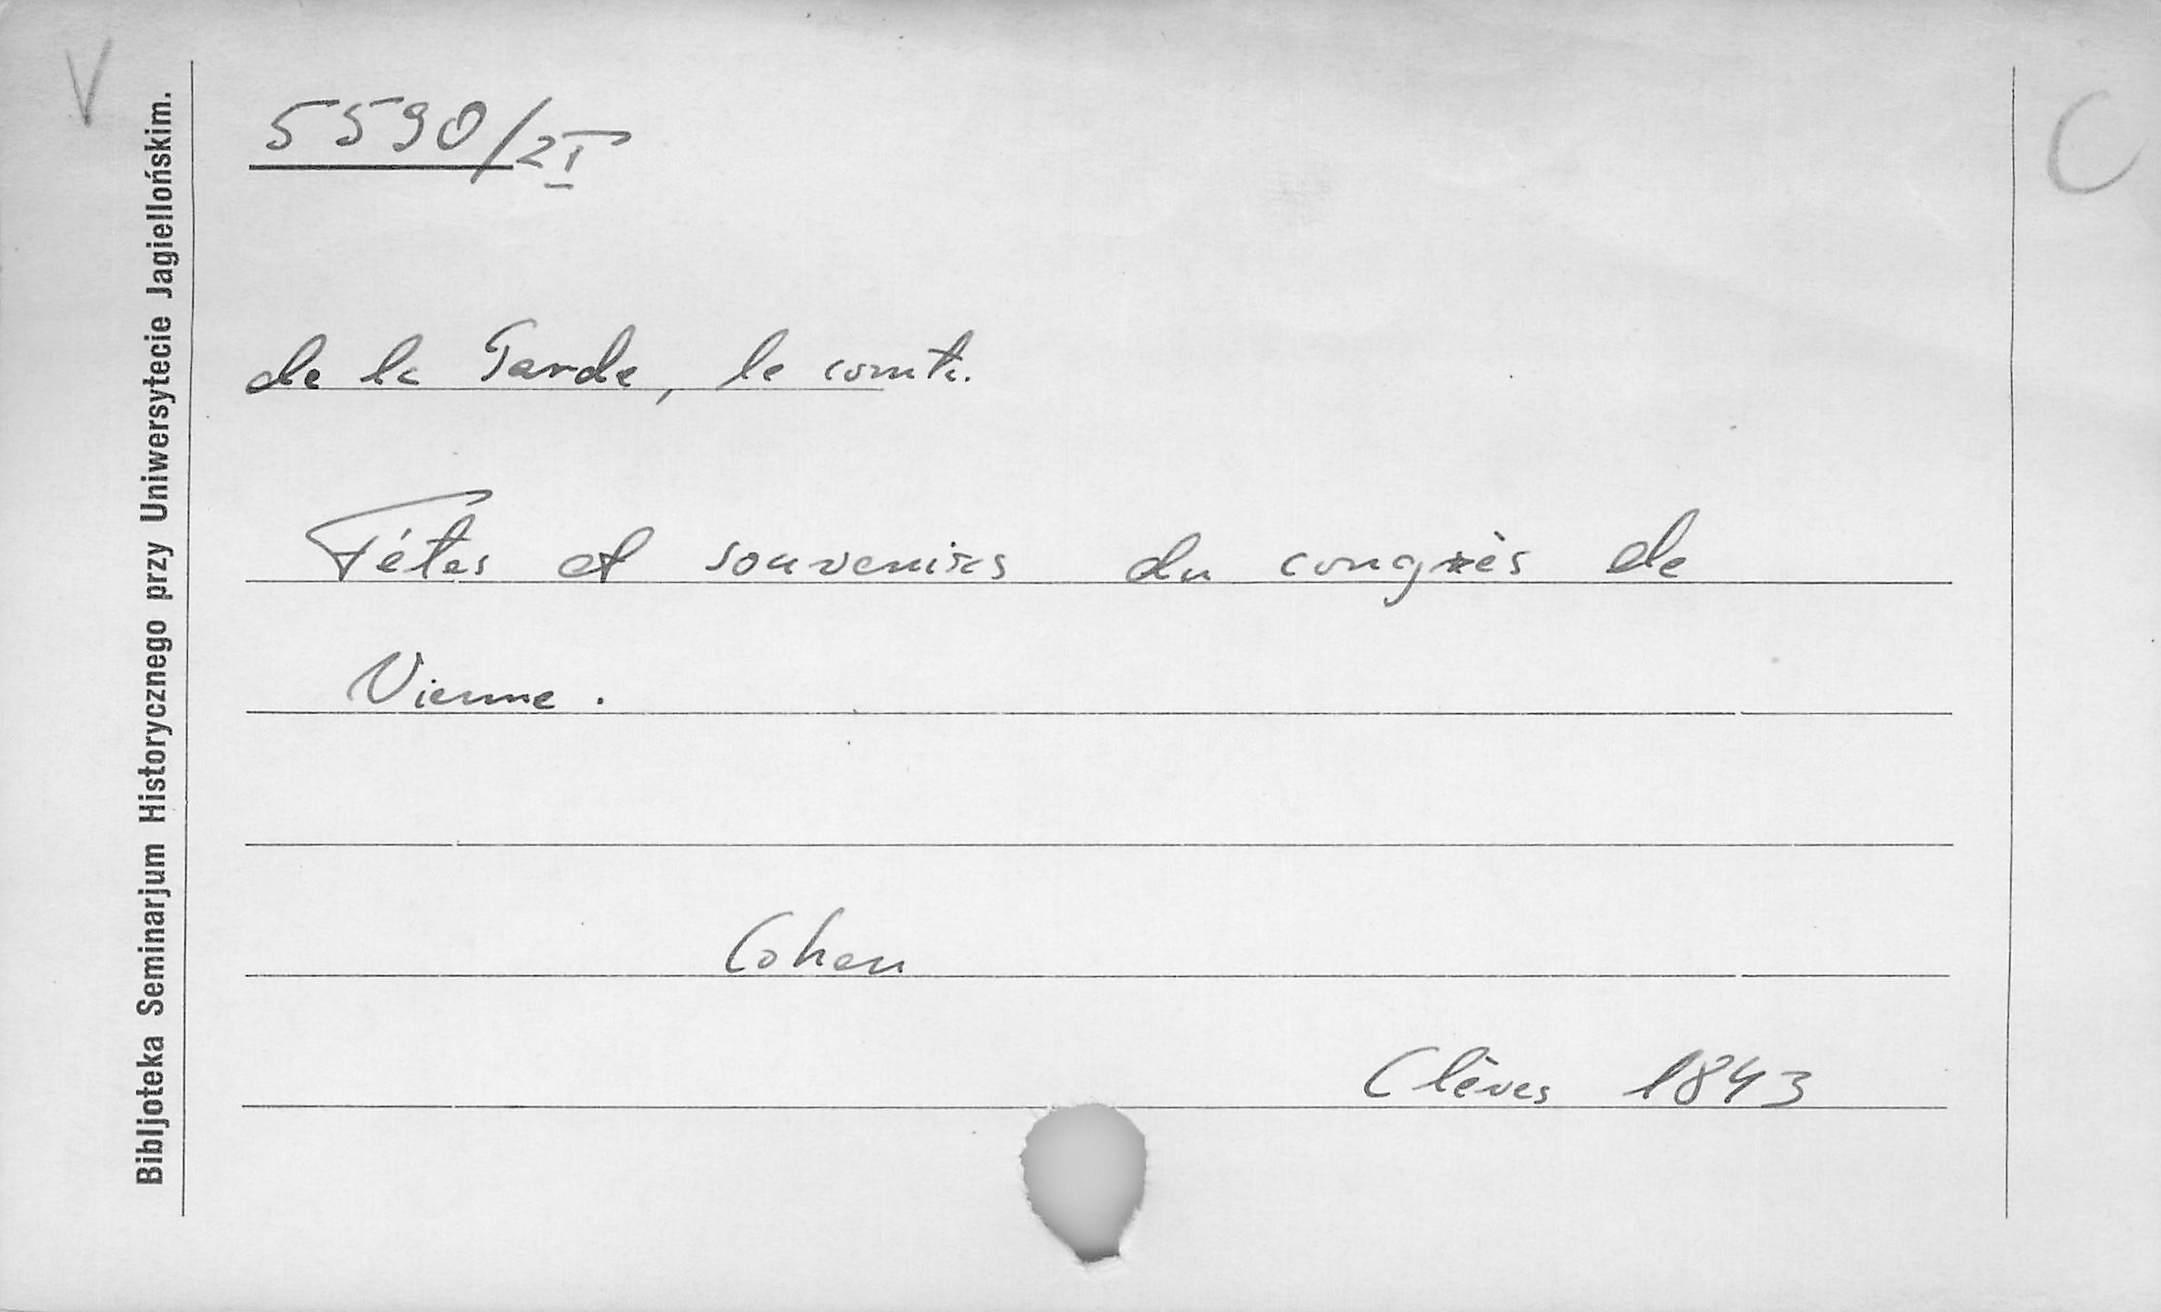 V
C
5590/2I
de la Garde, le comte.
Fêtes et souvenirs du congrès de
Vienne.
Cohen
Clèves 1843
Bibljoteka Seminarjum Historycznego przy Uniwersytecie Jagiellońskim.